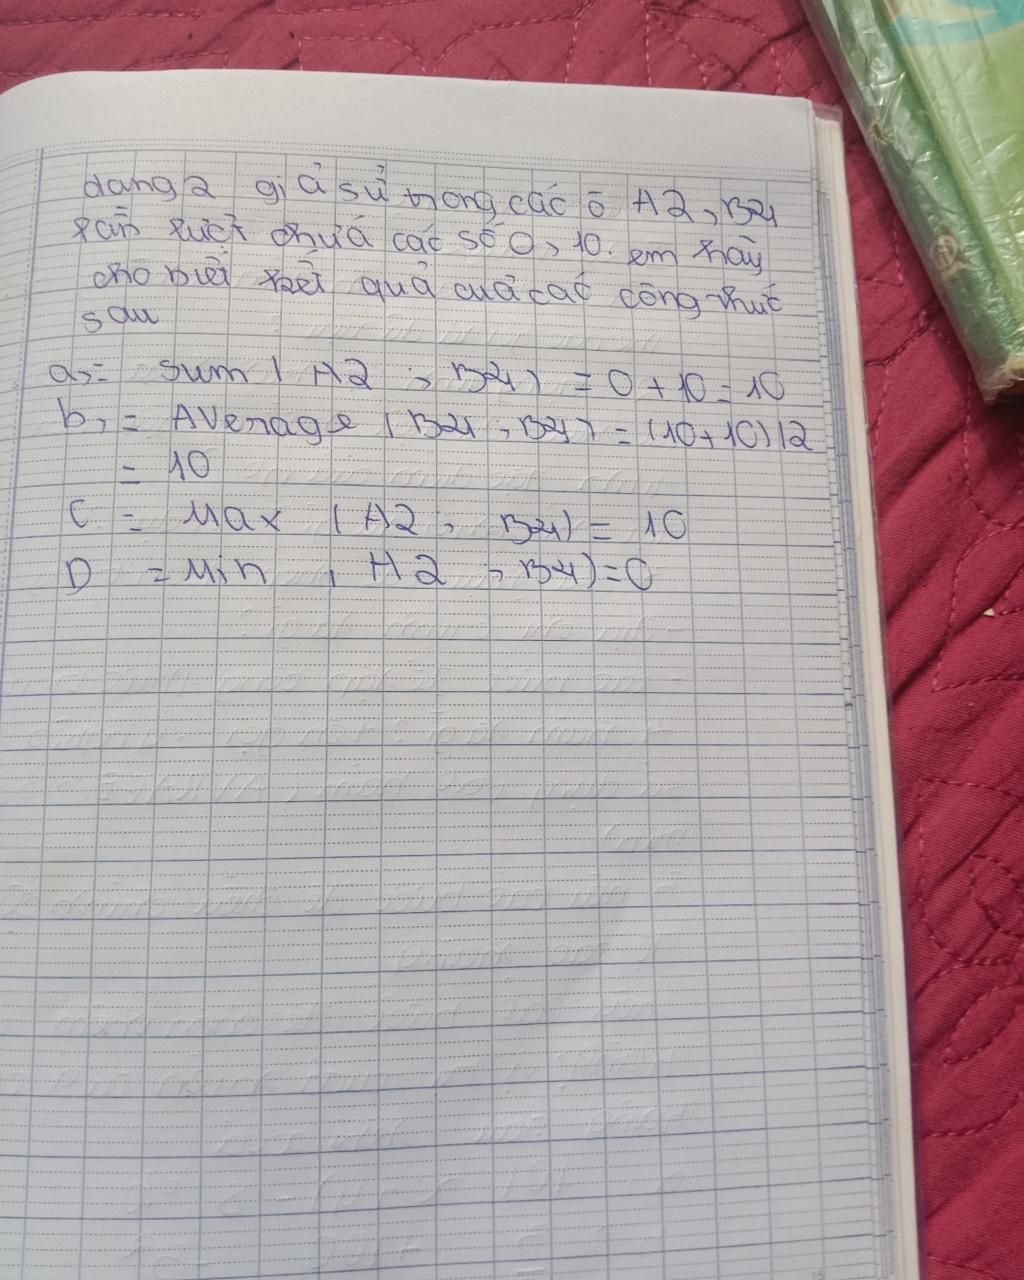 dạng 2 giả sử trong các ô A2, B4
lần lượt chứa các số 0, 10. em hãy
cho biết kết quả của các công thức
sau
a, = Sum ( A2 , B4 ) = 0 + 10 = 10
b, = AVenage ( B4 , B4 ) = (10+10) / 2
= 10
C = Max ( A2 , B4) = 10
D = Min , A2 , B4) = 0